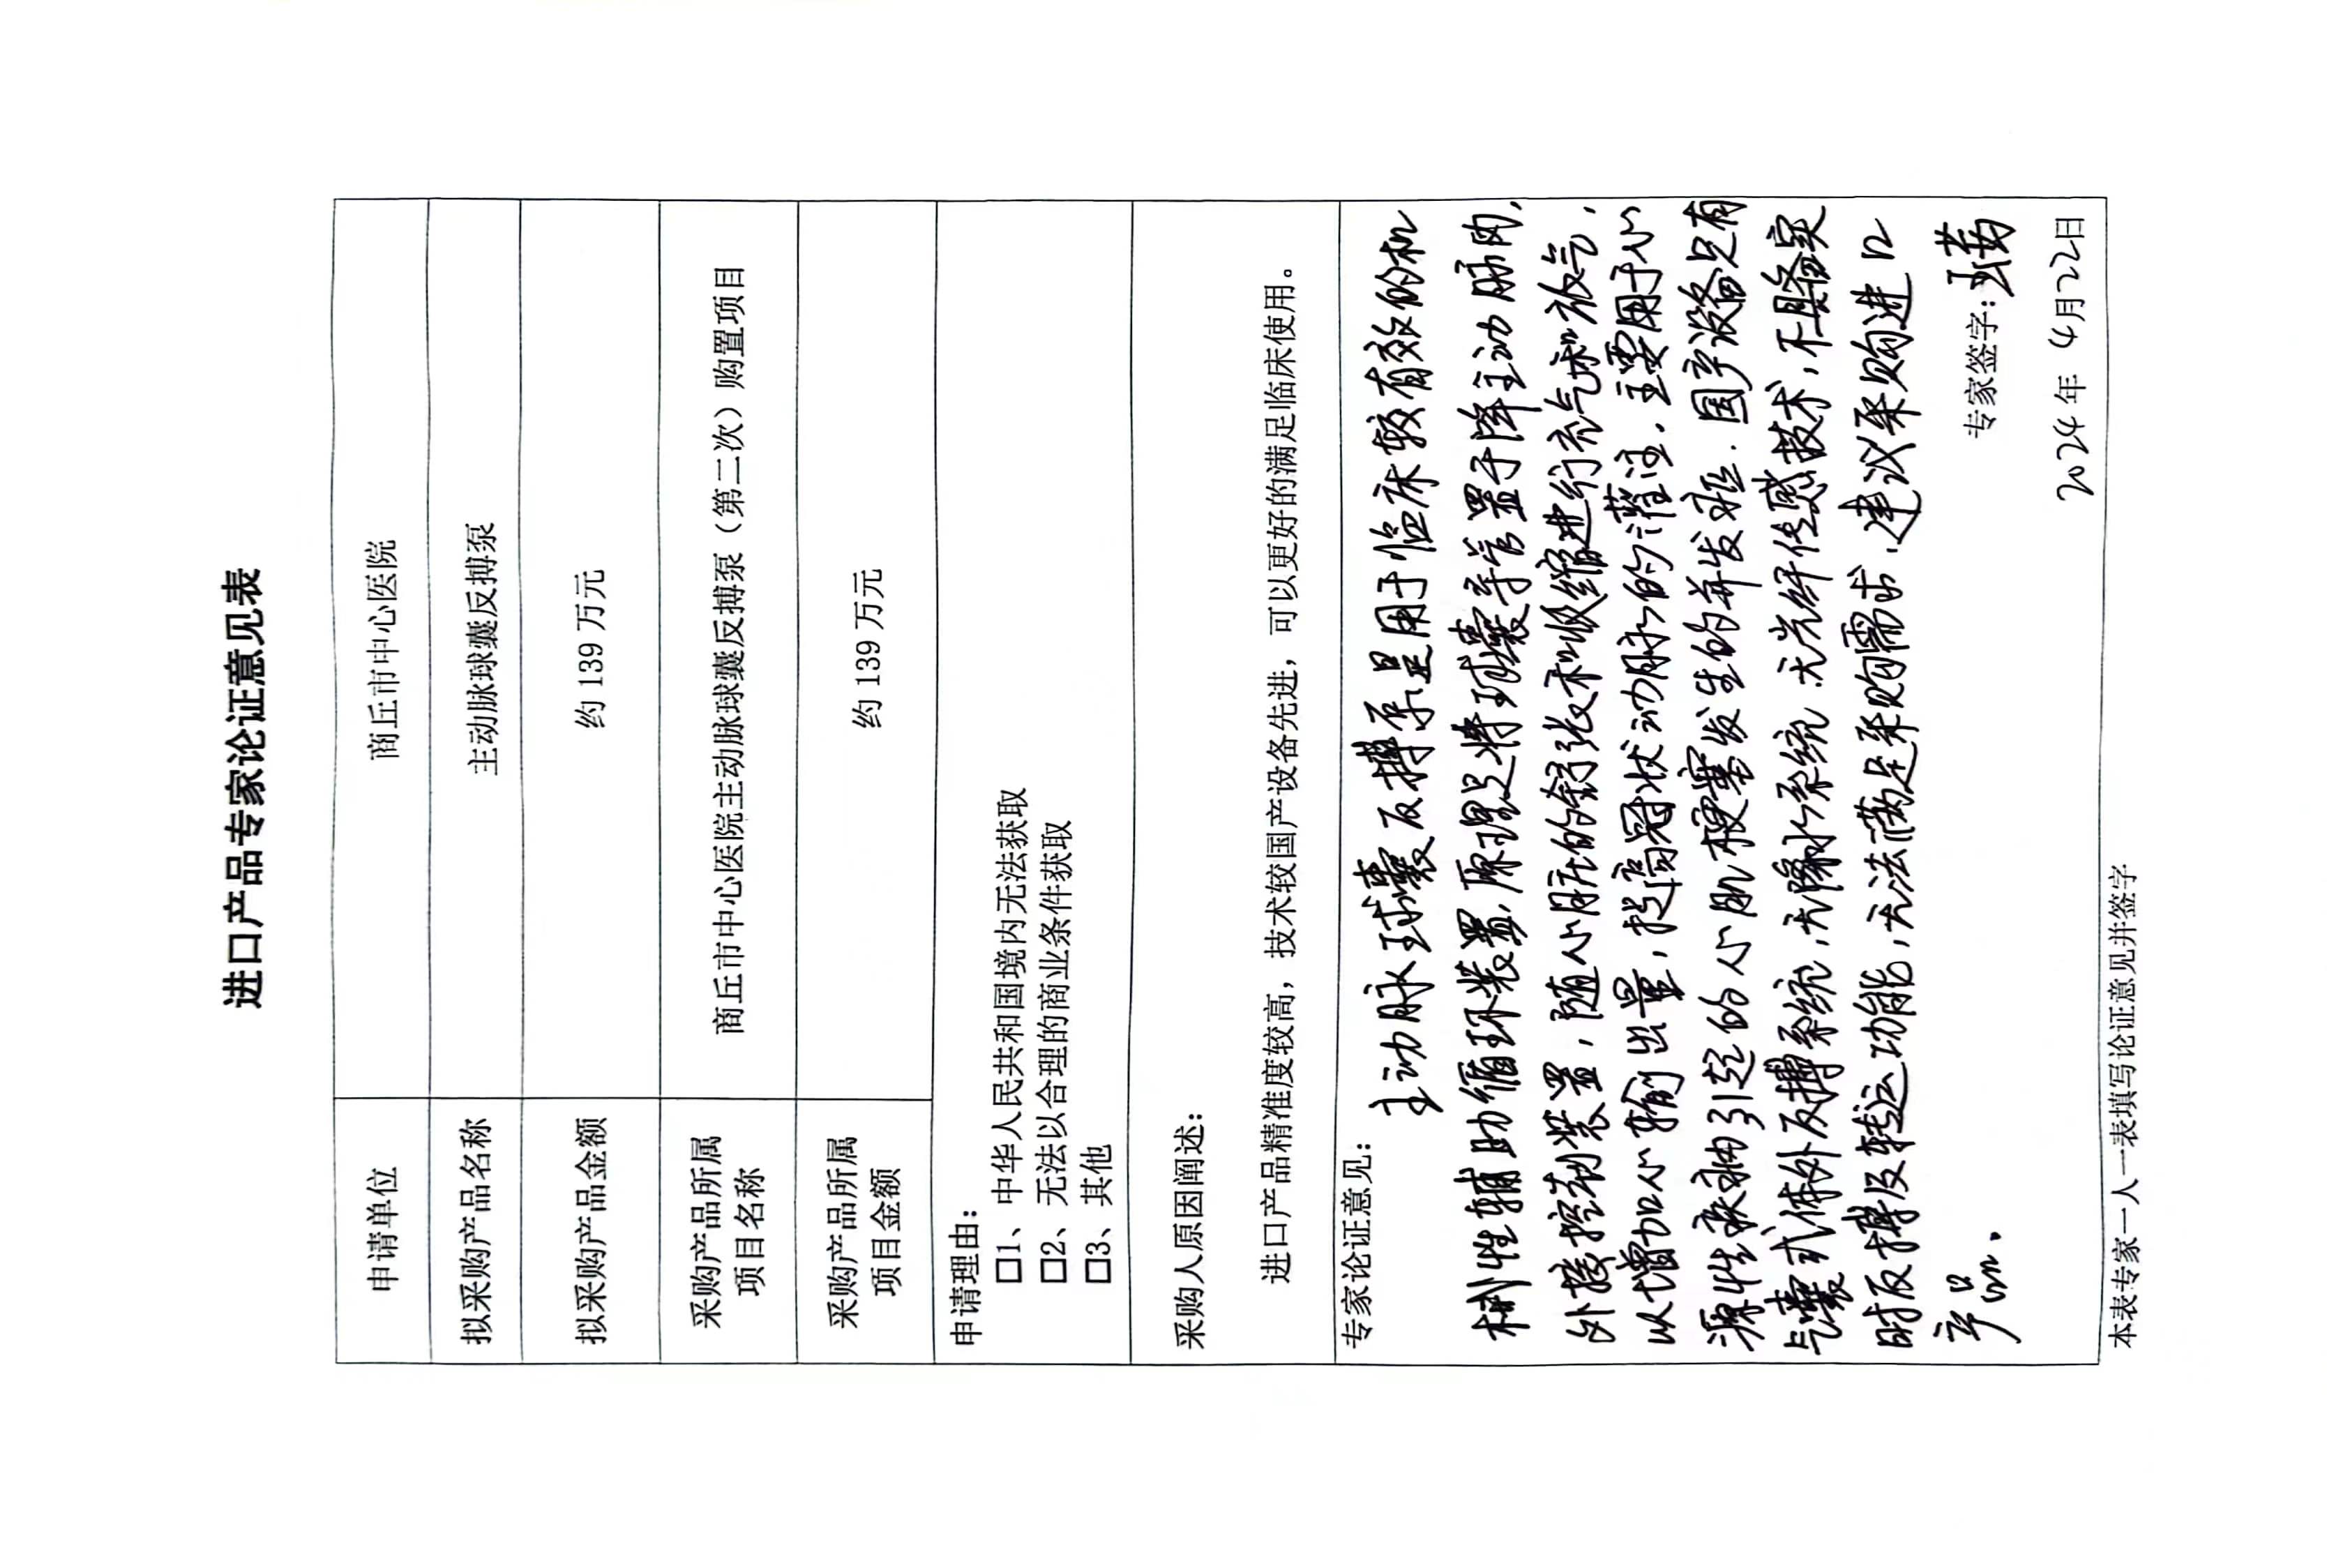 进口产品专家论证意见表
申请单位 商丘市中心医院
拟采购产品名称 主动脉球囊反搏泵
拟采购产品金额 约 139 万元
采购产品所属
项目名称 商丘市中心医院主动脉球囊反搏泵（第二次）购置项目
采购产品所属
项目金额 约 139 万元
申请理由：
□1、中华人民共和国境内无法获取
□2、无法以合理的商业条件获取
□3、其他
采购人原因阐述：
进口产品精准度较高，技术较国产设备先进，可以更好的满足临床使用。
专家论证意见：
主动脉球囊反搏泵是用于临床较有效的机
械性辅助循环装置，原理是将球囊导管置于降主动脉内，
外接控制装置，随心脏的舒张和收缩进行充气和放气，
以增加心输出量，提高冠状动脉的灌注，主要用于心
源性休克引起的心肌梗塞发生的并发症．国产设备只有
气囊式体外反搏系统，无降水系统．无光纤传感技术，不具备实
时反搏及转运功能，无法满足采购需求．建议采购进口
产品．
专家签字：
2024年 4月22日
本表专家一人一表填写论证意见并签字